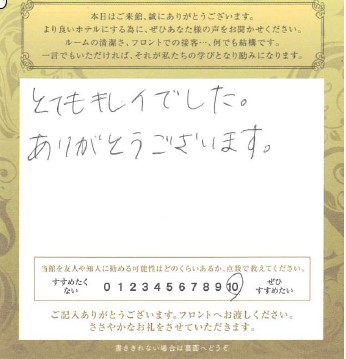 本日はご来館、誠にありがとうございます。
より良いホテルにする為に、ぜひあなた様の声をお聞かせください。
ルームの清潔さ、フロントでの接客…、何でも結構です。
一言でもいただければ、それが私たちの学びとなり励みになります。
とてもキレイでした。
ありがとうございます。
当館を友人や知人に勧める可能性はどのくらいあるか、点数で教えてください。
すすめたくない 0 1 2 3 4 5 6 7 8 9 10 ぜひすすめたい
ご記入ありがとうございます。フロントへお渡しください。
ささやかなお礼をさせていただきます。
書ききれない場合は裏面へどうぞ